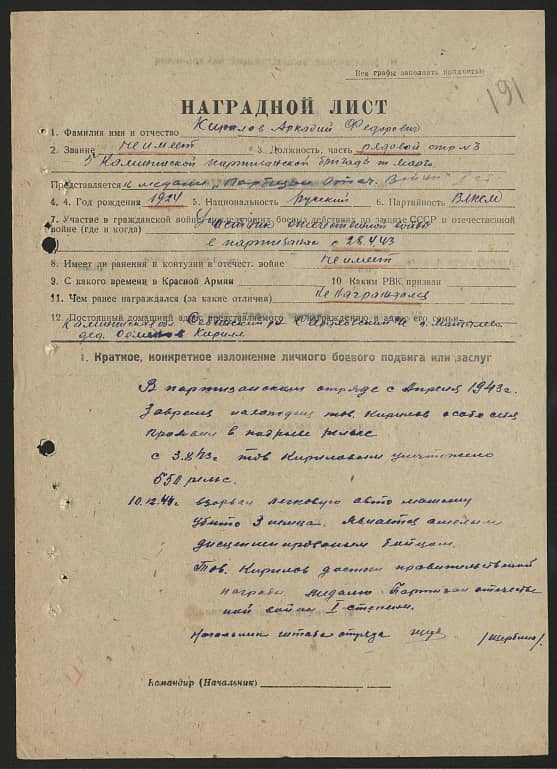 Все графы заполнять полностью
191
НАГРАДНОЙ ЛИСТ
1. Фамилия имя и отчество Кирилов Аркадий Федорович
2. Звание не имеет 3. Должность, часть рядовой отр №3
5 Калининской партизанской бригады т. Марго
Представляется к медали „Партизан Отеч. Войны" I ст
4. 4. Год рождения 1924 5. Национальность Русский 6. Партийность Влксм
7. Участие в гражданской войне, последующих боевых действиях по защите СССР и отечественной
войне (где и когда) Участник отечественной войны
в партизанах с 28.4.43
8. Имеет ли ранения и контузии в отечест. войне не имеет
9. С какого времени в Красной Армии 10 Каким РВК призван
11. Чем ранее награждался (за какие отличия) Не награждался
12. Постоянный домашний адрес представляемого к награждению и адрес его семьи
Калининская обл. Себежский р-н
дед. Кирилл
1. Краткое, конкретное изложение личного боевого подвига или заслуг
В партизанским отряде с Апреля 1943 г.
Товрищ Кирилов особо себя
проявил в подрыве рельс
с 3.8.43г тов Кириловым уничтожено
550 рельс.
10.12.44г взорвал легковую авто машину
убито 3 немца. Является смелым
дисциплинированым бойцом.
Тов. Кирилов достоин правительственной
награды медалью Партизан отечестве
ной войны I степени.
Начальник штаба отряда /Щербина/.
Командир (Начальник)